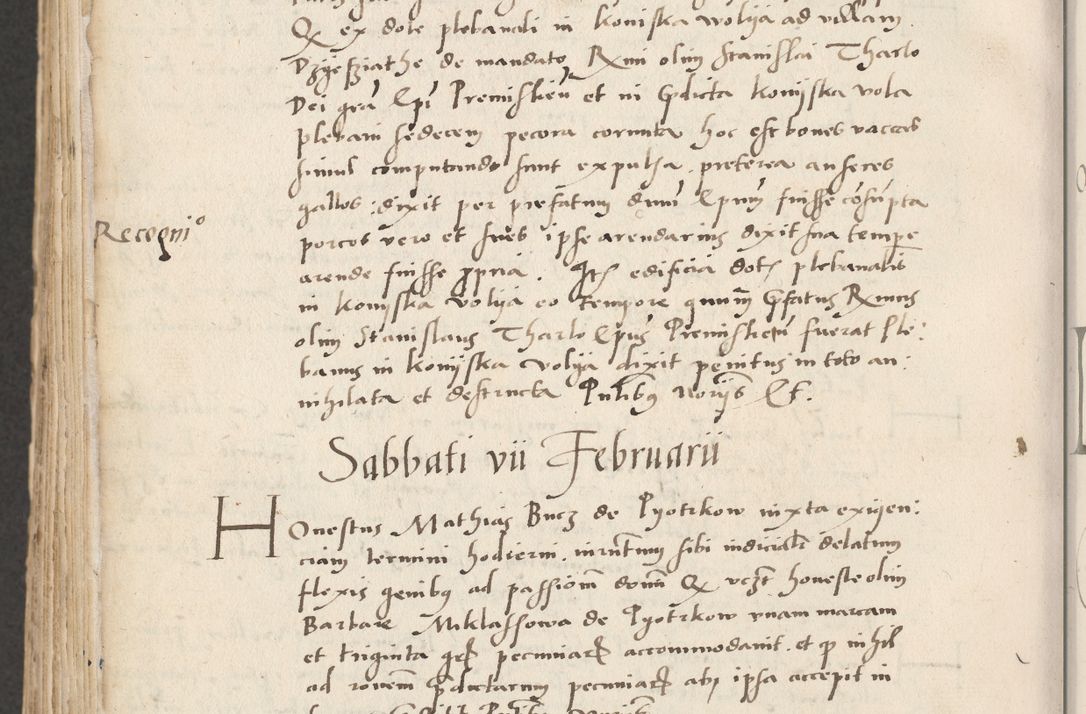 Q ex dote plebanali in koniska wolya ad villam
Dzyesziathe de mandato Rmi olim Stanislai Tharlo
Dei gra Epi Premislien et in pdicta konyska vola
plebani sedecem pecora cornuta hoc est boues vaccas
simul computando sunt expulsa . preterea anseres
gallos : dixit per prefatum dnum Epum fuisse cosupta
porcos vero et sues ipse arendarius dixit sua tempe
Recognio
arende fuisse ppria . Ite edificia dotis plebanalis
in konyska volya eo tempore quum pfatus Rmus
olim Stanislaus Tharlo Epus Premislien fuerat ple:
banus in konyska volya dixit penitus in toto an:
nihilata et destructa Pntibus noryis Et.
Sabbati vii Februarii
Honestus Mathias Bucz de Pyotrkow iuxta exigen:
ciam termini hodierni . iurmtum sibi iudicialr delatum
flexis genibus ad passionem domini Q vczt honeste olim
Barbare Miklassowa de Pyotrkow vnam marcam
et triginta gr pecuniar accommodauit . et q nihil
ad ronem pdictarum pecuniar ab ipsa accepit in